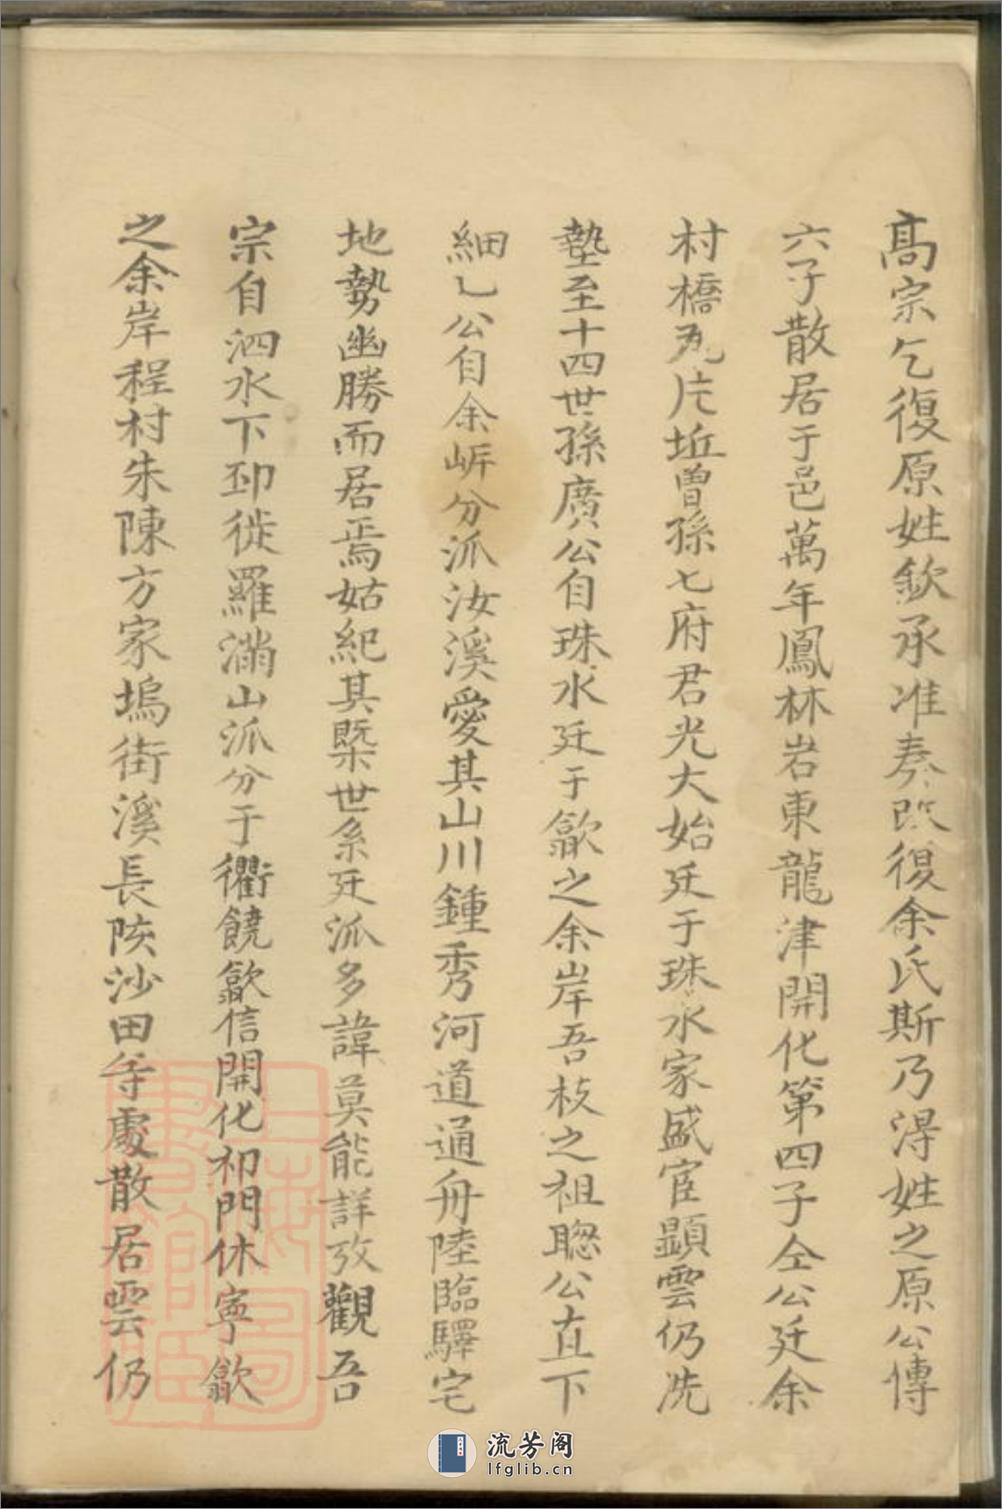 高宗乞復原姓欽承准奏改復余氏斯乃淂姓之原公傳
六子散居于邑萬年鳳林岩東龍津開化第四子仝公廷余
村橋片坵曽孫七府君光大始廷于珠水家盛宦顕雲仍
墊至十四世孫廣公自珠水廷于歙之余岸吾枝之祖聦公直下
細乚公自余岍分派汝溪愛其山川鍾秀河道通舟陸臨驛宅
地勢幽勝而居焉姑紀其槩世系廷派多諱莫能詳攷觀吾
宗自泗水下邳徙羅滿山派分于衢饒歙信開化祁門休寧歙
之余岸程村朱陳方家塢街溪長陔沙田等處散居雲仍
上海圖書館藏
流芳阁
lfglib.cn